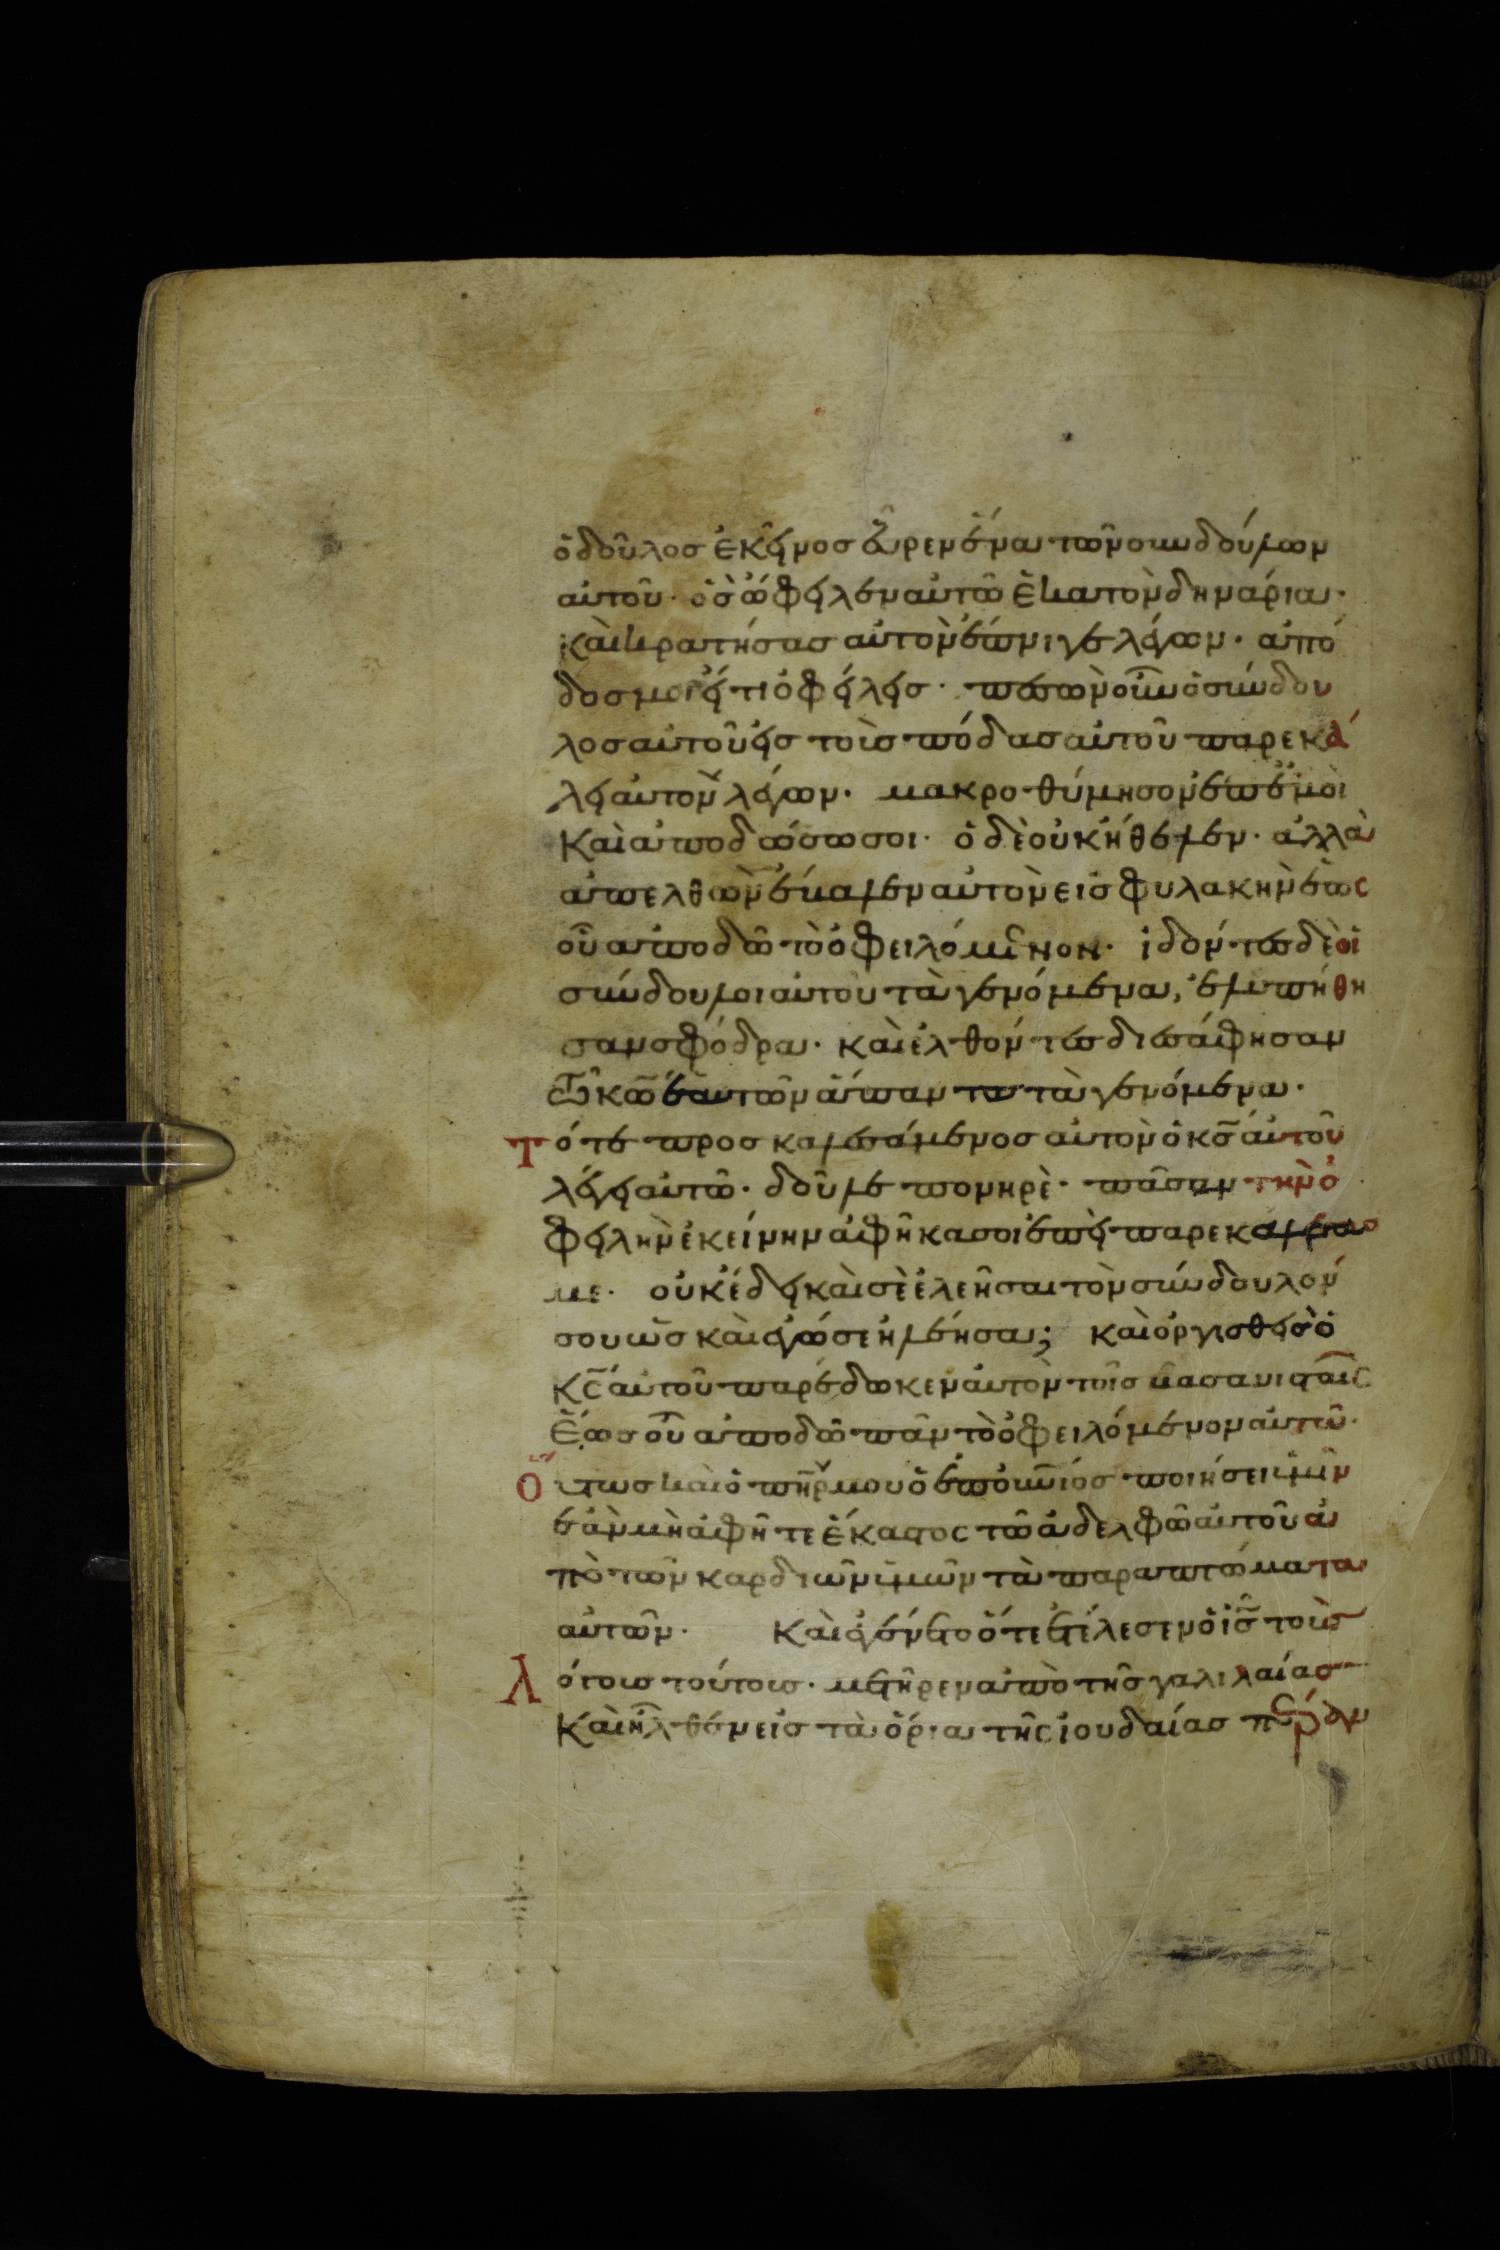 ὁ δοῦλος ἐκεῖνος εὗρεν ἕνα τῶν συνδούλων
αὐτοῦ· ὃς ὤφειλεν αὐτῶ ἑκατὸν δηνάρια·
καὶ κρατήσας αὐτὸν ἔπνιγε λέγων· ἀπό
δος μοι εἴ τι ὀφείλεις· πεσὼν οὖν ὁ σύνδου
λος αὐτοῦ εἰς τοὺς πόδας αὐτοῦ παρεκά
λει αὐτὸν λέγων· μακροθύμησον ἐπ' ἐμοὶ
καὶ ἀποδώσω σοι· ὁ δὲ οὐκ ἤθελεν· ἀλλὰ
ἀπελθὼν ἔβαλεν αὐτὸν εἰς φυλακὴν ἕως
οὗ ἀποδῶ τὸ ὀφειλόμενον· ἰδόντες δὲ οἱ
σύνδουλοι αὐτοῦ τὰ γενόμενα, ἐλυπήθη
σαν σφόδρα· καὶ ἐλθόντες διεσάφησαν
τῶ κῶ ἑαυτῶν ἅπαντα τὰ γενόμενα·
Τότε προσκαλεσάμενος αὐτὸν ὁ κς αὐτοῦ
λέγει αὐτῶ· δοῦλε πονηρὲ· πᾶσαν τὴν ὀ
φειλὴν ἐκείνην ἀφῆκα σοι ἐπεὶ παρεκάλεσας
με· οὐκ ἔδει καὶ σὲ ἐλεῆσαι τὸν σύνδουλόν
σου ὡς καὶ ἐγώ σε ἠλέησα; καὶ ὀργισθεὶς ὁ
κς αὐτοῦ παρέδωκεν αὐτὸν τοῖς βασανισταῖς
ἕως οὗ ἀποδῶ πᾶν τὸ ὀφειλόμενον αὐτῶ·
Οὕτως καὶ ὁ πηρ μου ὁ ἐπουνιός ποιήσει ὑμῖν
ἐὰν μὴ ἀφῆτε ἕκαστος τῶ ἀδελφῶ αὐτοῦ ἀ
πὸ τῶν καρδιῶν ὑμῶν τὰ παραπτώματα
αὐτῶν· Καὶ ἐγένετο ὅτε ἐτέλεσεν ὁ ις τοὺς
Λόγους τούτους· μετῆρεν ἀπὸ τῆς γαλιλαίας
καὶ ἦλθεν εἰς τὰ ὅρια τῆς ἰουδαίας πέραν